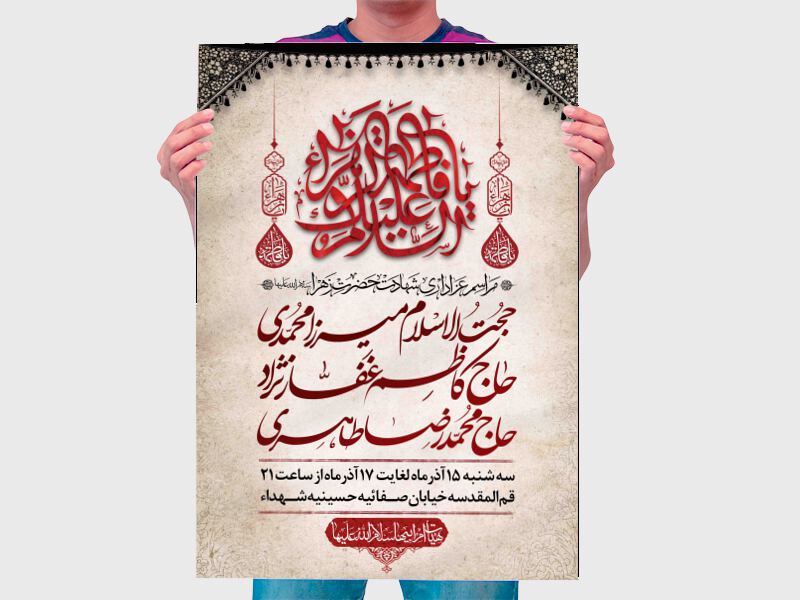 السلام علیک یا فاطمة الزهراء
یا زهرا
یا فاطمة
یا زهرا
یا فاطمة
مراسم عزاداری شهادت حضرت زهرا سلام الله علیها
حجت الاسلام میرزامحمدی
حاج کاظم غفارنژاد
حاج محمدرضا طاهری
سه شنبه ۱۵ آذر ماه لغایت ۱۷ آذر ماه از ساعت ۲۱
قم المقدسه خیابان صفائیه حسینیه شهداء
هیات ام ابیها سلام الله علیها